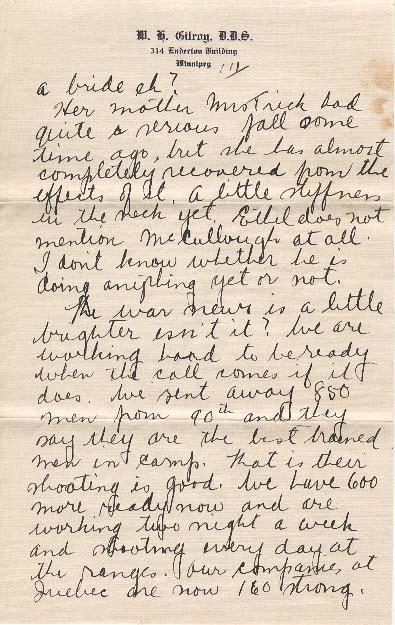 W. H. Gilroy, D.D.S.
314 Enderton Building
Winnipeg
a bride eh?
Her mother Mrs Trick had
quite a serious fall some
time ago, but she has almost
completely recovered from the
effects of it. A little stiffness
in the neck yet. Ethel does not
mention McCullough at all.
I don't know whether he is
doing anything yet or not.
The war news is a little
brighter isn't it? We are
working hard to be ready
when the call comes if it
does. We sent away 850
men from 90th and they
say they are the best trained
men in camp. That is their
shooting is good. We have 600
more ready now and are
working two night a week
and shooting every day at
the ranges. Our companies at
Quebec are now 160 strong.